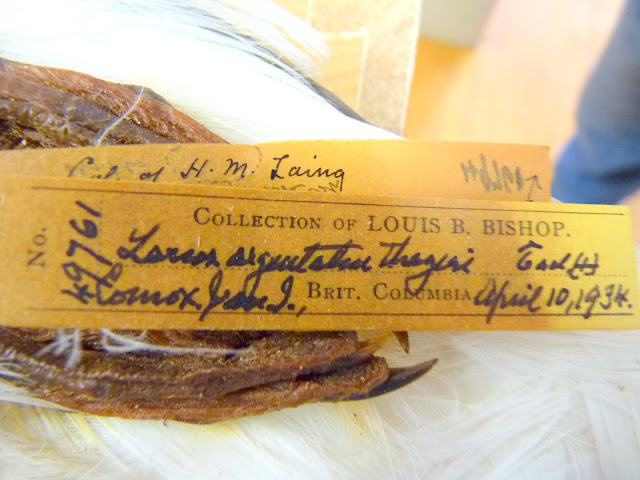 Col. of H. M. Laing
COLLECTION OF LOUIS B. BISHOP.
No. 49761
Larus argentatus thayeri
Comox, Van I., BRIT. COLUMBIA April 10, 1934.